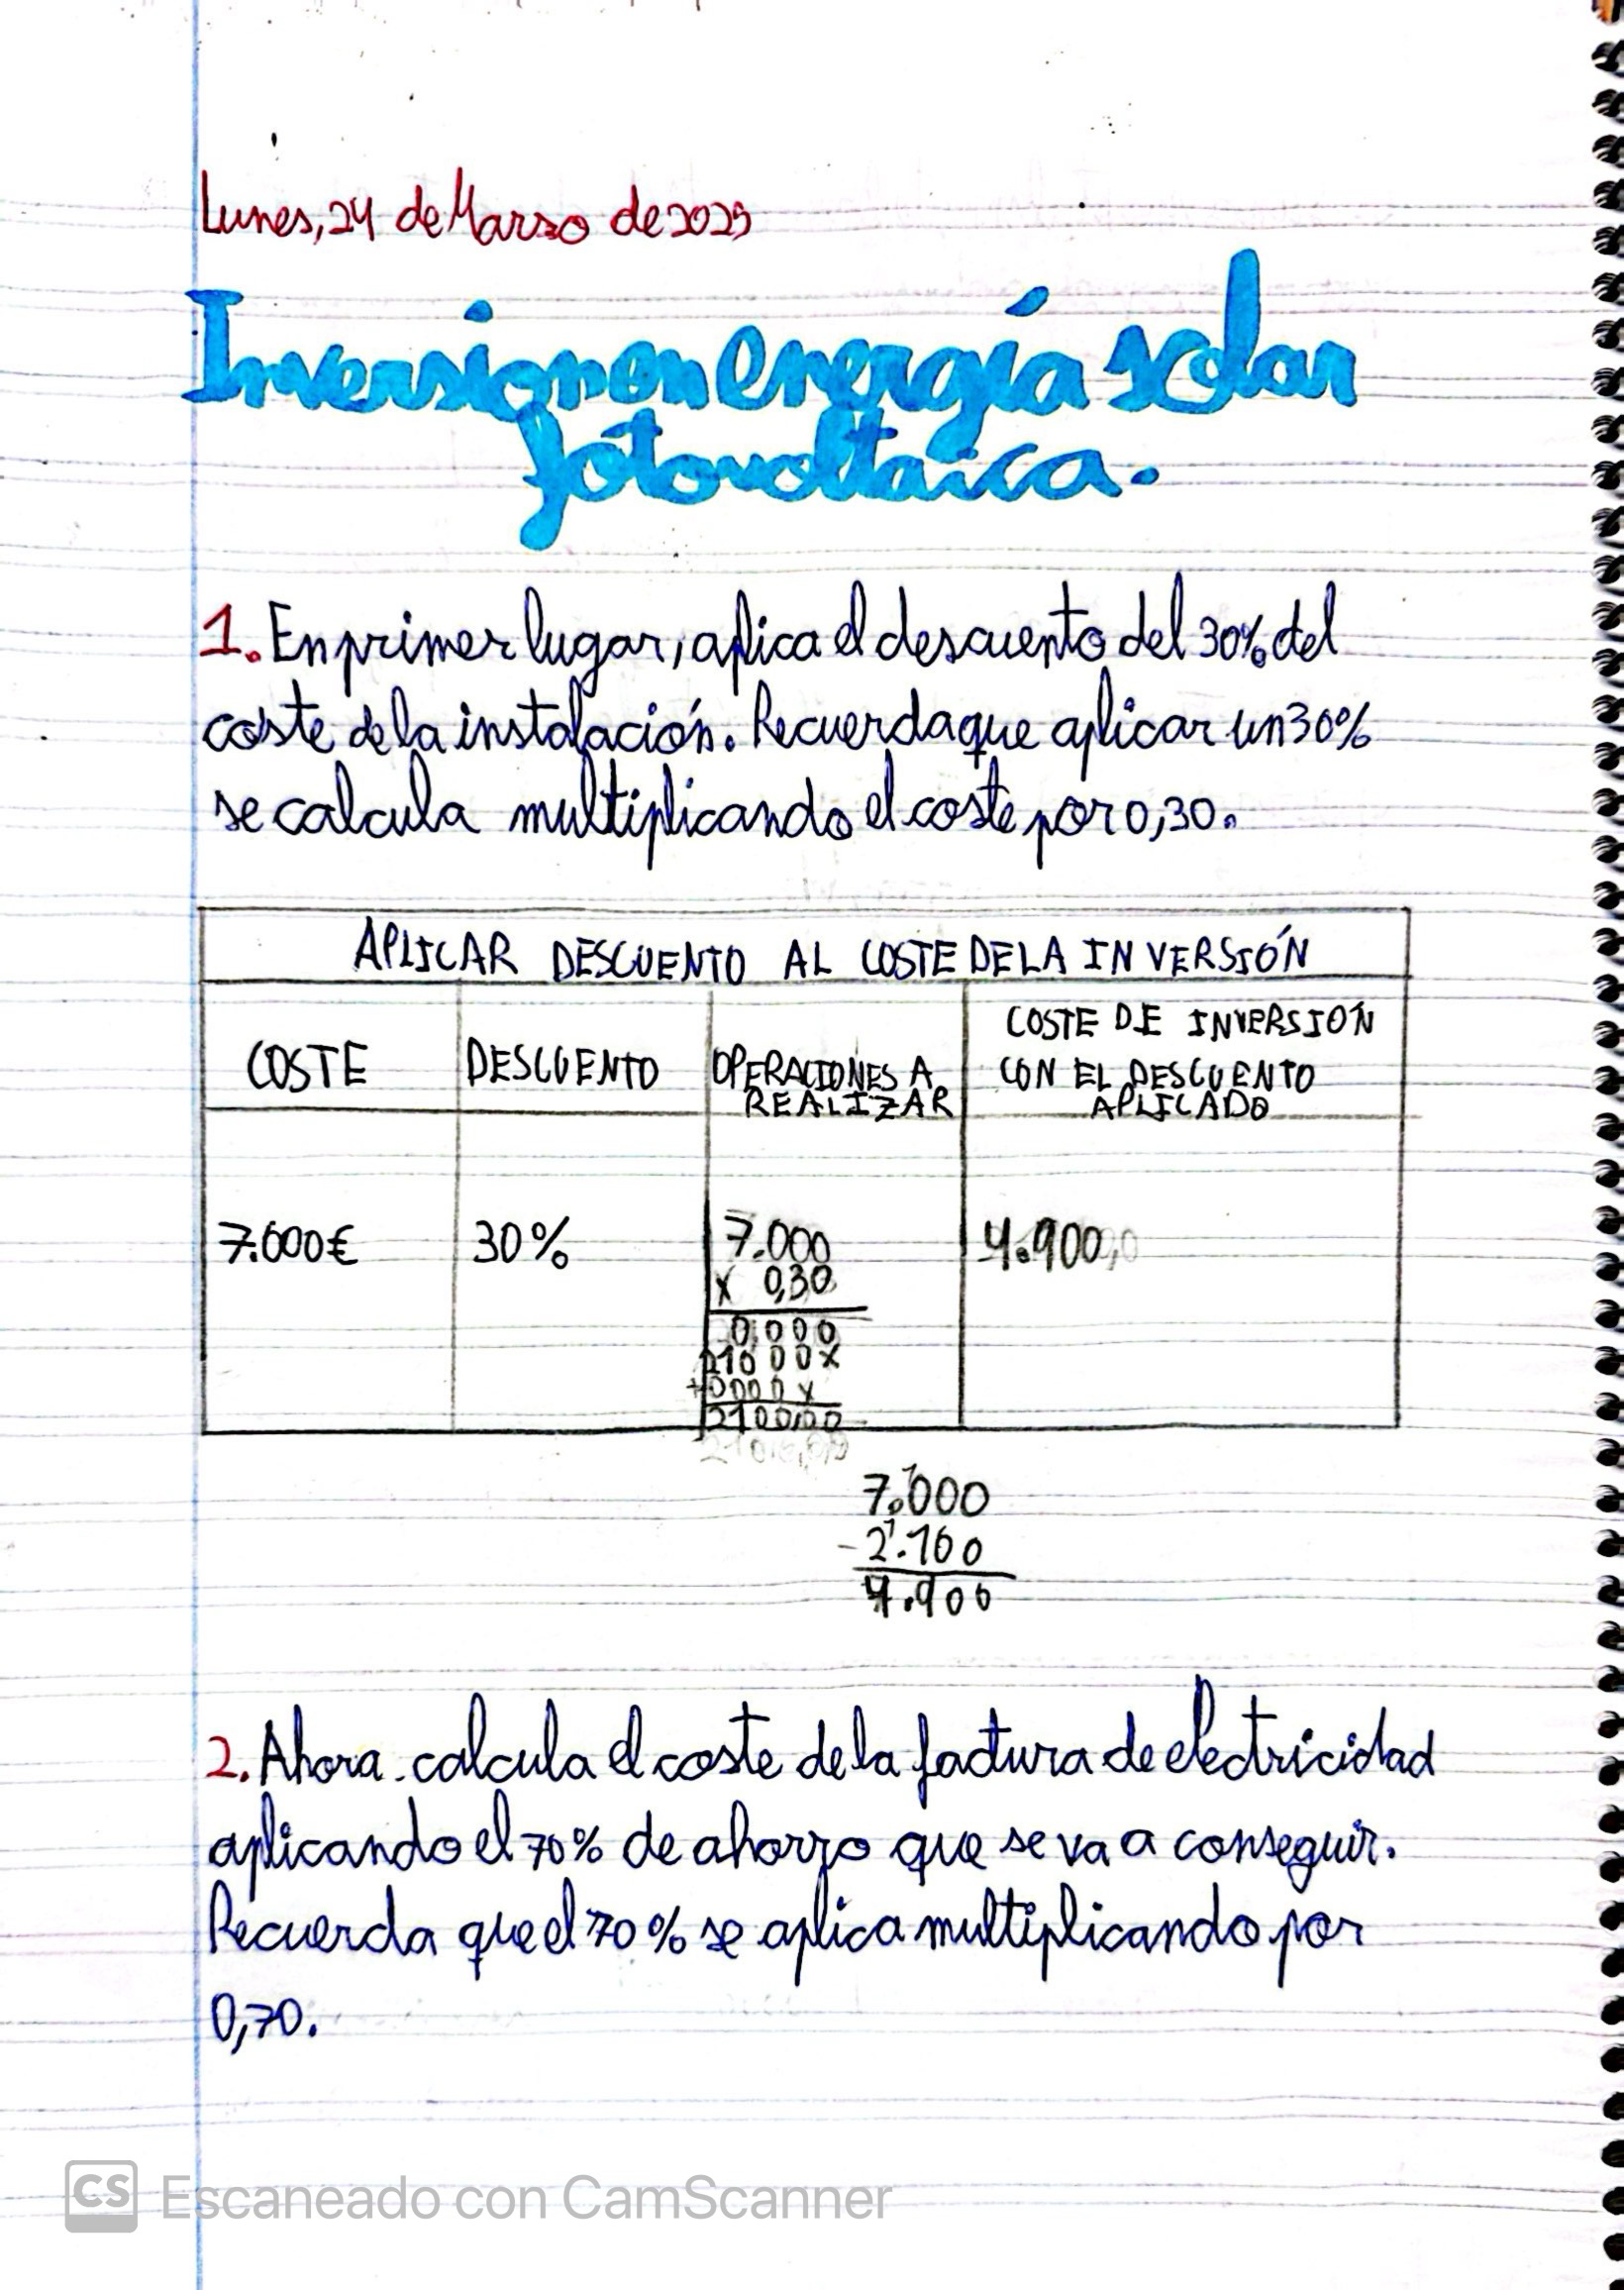 Lunes, 24 de Marzo de 2025
Inversion en energía solar
fotovoltaica.
1. En primer lugar, aplica el descuento del 30% del
coste de la instalación. Recuerda que aplicar un 30%
se calcula multiplicando el coste por 0,30.
APLICAR DESCUENTO AL COSTE DE LA INVERSIÓN
COSTE
DESCUENTO
OPERACIONES A
REALIZAR
COSTE DE INVERSIÓN
CON EL DESCUENTO
APLICADO
7.000€
30%
7.000
x 0,30
0.000
21000x
+0000x
2100,00
4.900,0
7.000
-2.100
4.900
2. Ahora calcula el coste de la factura de electricidad
aplicando el 70% de ahorro que se va a conseguir.
Recuerda que el 70% se aplica multiplicando por
0,70.
CS Escaneado con CamScanner